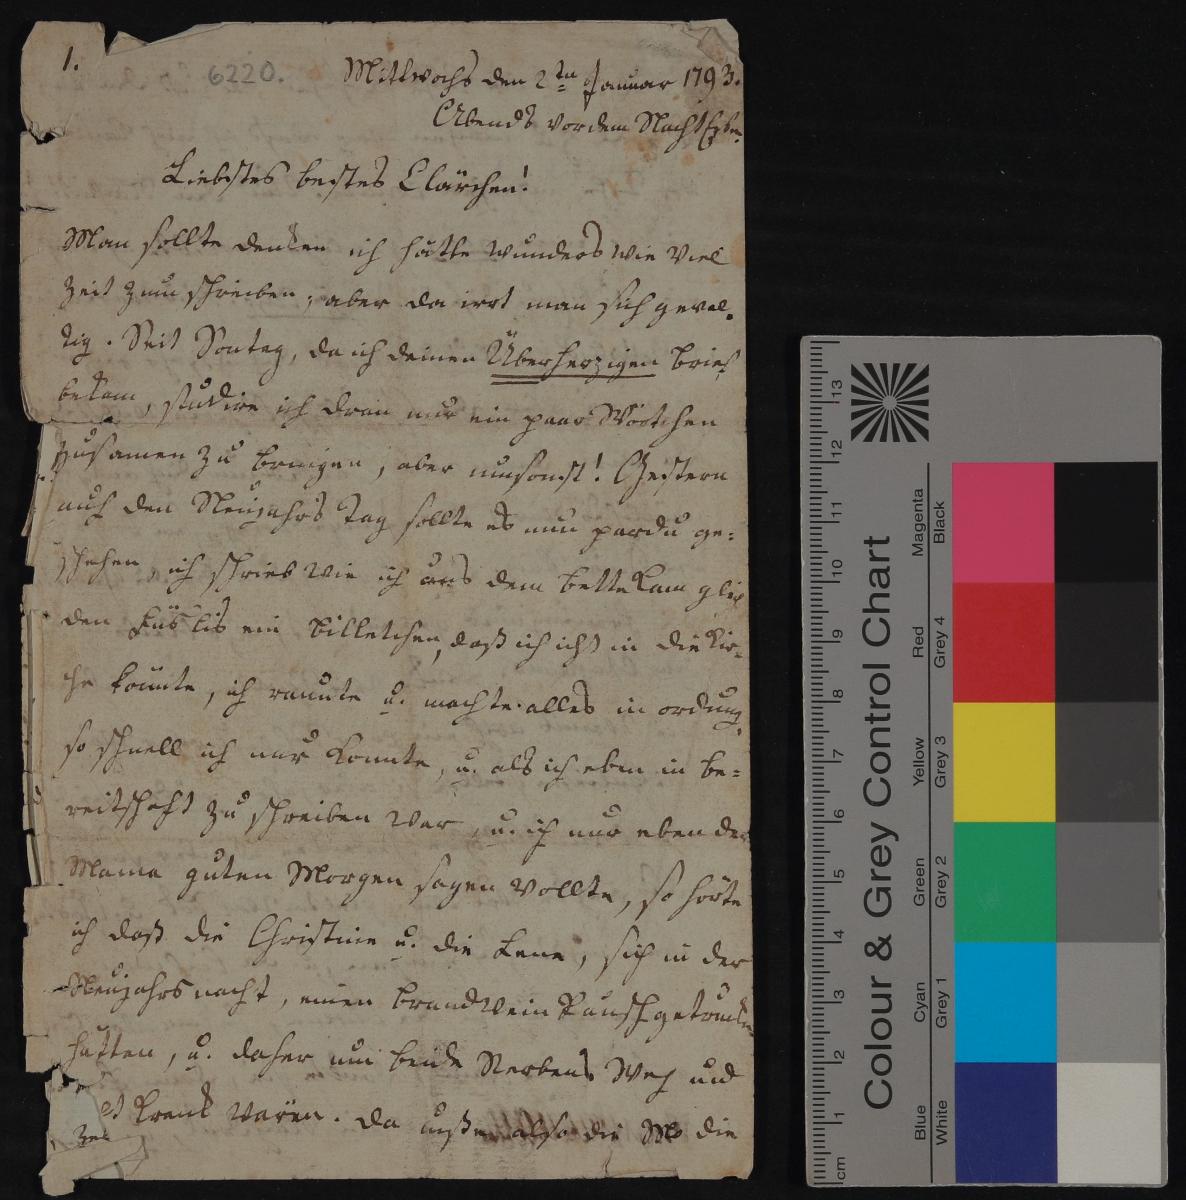 1.
6220.
Mittwochs den 2tn Januar 1793.
Abends vor dem NachtEßen.
Liebstes bestes Clärchen!
Man sollte denken ich hätte wunders wie viel
Zeit zum schreiben, aber da irrt man sich gewal-
tig. Seit Sontag, da ich deinen Überherzigen brief
bekam, studire ich dran nur ein paar Wörtchen
zusamen zu bringen, aber umsonst! Gestern
auf den Neujahrs Tag sollte es nun pardu ge=
schehen, ich schrieb wie ich aus dem bette kam gleich
den Füslis ein billetchen, daß ich nicht in die Kir-
che könnte, ich raumte u. machte alles in ordnung,
so schnell ich nur konnte, u. als ich eben in be=
reitschaft zu schreiben war, u. ich nur eben der
Mama guten Morgen sagen wollte, so hörte
ich daß die Christine u. die Lene, sich in der
Neujahrsnacht, einen brandwein Rausch getrunken
hatten, u. daher nun beide Sterbens Weh und
krank wären. Da also die die
Colour & Grey Control Chart
Magenta
Red
Yellow
Green
Cyan
Blue
Black
Grey 4
Grey 3
Grey 2
Grey 1
White
13
12
11
10
9
8
7
6
5
4
3
2
1
cm